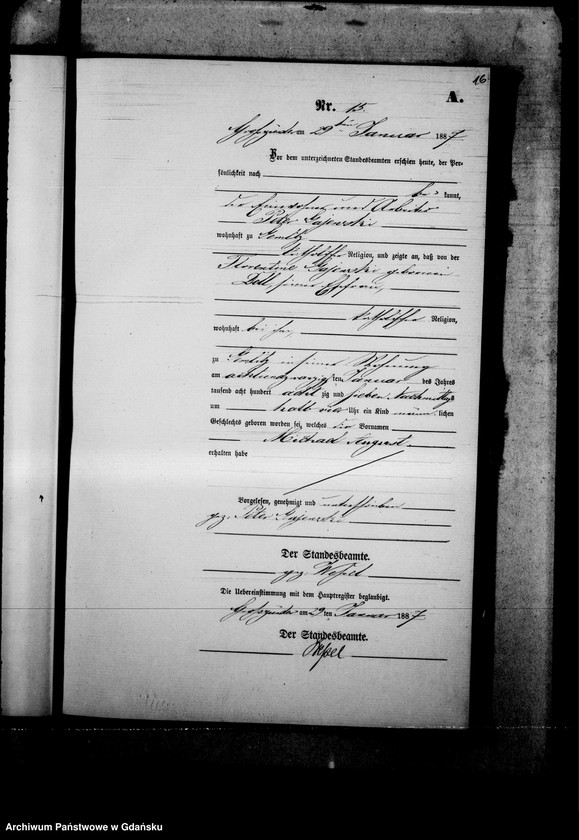 16
A.
Nr. 15.
am 29ten Januar 1887
Vor dem unterzeichneten Standesbeamten erschien heute, der Per-
sönlichkeit nach
be kannt,
und Arbeiter
Peter Gajewski
wohnhaft zu
katholischer Religion, und zeigte an, daß von der
Florentine Gajewski geborenen
seiner Ehefrau,
katholischer Religion,
wohnhaft bei ihm,
zu in seiner Wohnung
am achtundzwanzigsten Januar des Jahres
tausend acht hundert achtzig und sieben Nachmittags
um halb Uhr ein Kind männlichen
Geschlechts geboren worden sei, welches die Vornamen
Michael August
erhalten habe
Vorgelesen, genehmigt und unterschrieben
gez. Peter Gajewski
Der Standesbeamte.
gez. Wessel
Die Uebereinstimmung mit dem Hauptregister beglaubigt.
am 29ten Januar 1887
Der Standesbeamte.
Wessel
Archiwum Państwowe w Gdańsku